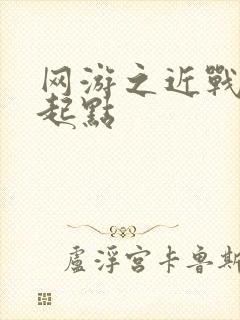 网游之近戰
起點
盧浮宮卡鲁斯